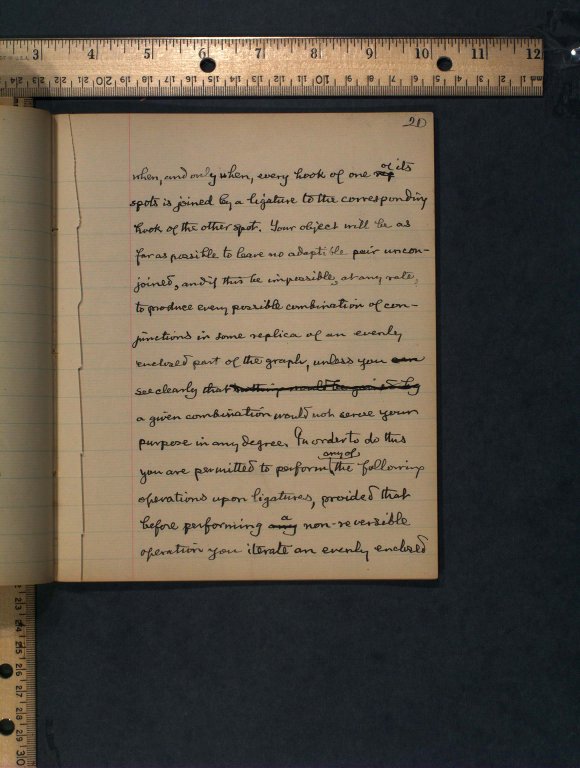 20
when, and only when, every hook of one of its
spots is joined by a ligature to the corresponding
hook of the other spot. Your object will be as
far as possible to leave no adaptible pair uncon-
joined, and if this be impossible, at any rate,
to produce every possible combination of con-
junctions in some replica of an evenly
enclosed part of the graph, unless you can
see clearly that nothing would be gained by
a given combination would not serve your
purpose in any degree. In order to do this
any of
you are permitted to perform the following
operations upon ligatures, provided that
before performing any a non-reversible
operation you iterate an evenly enclosed